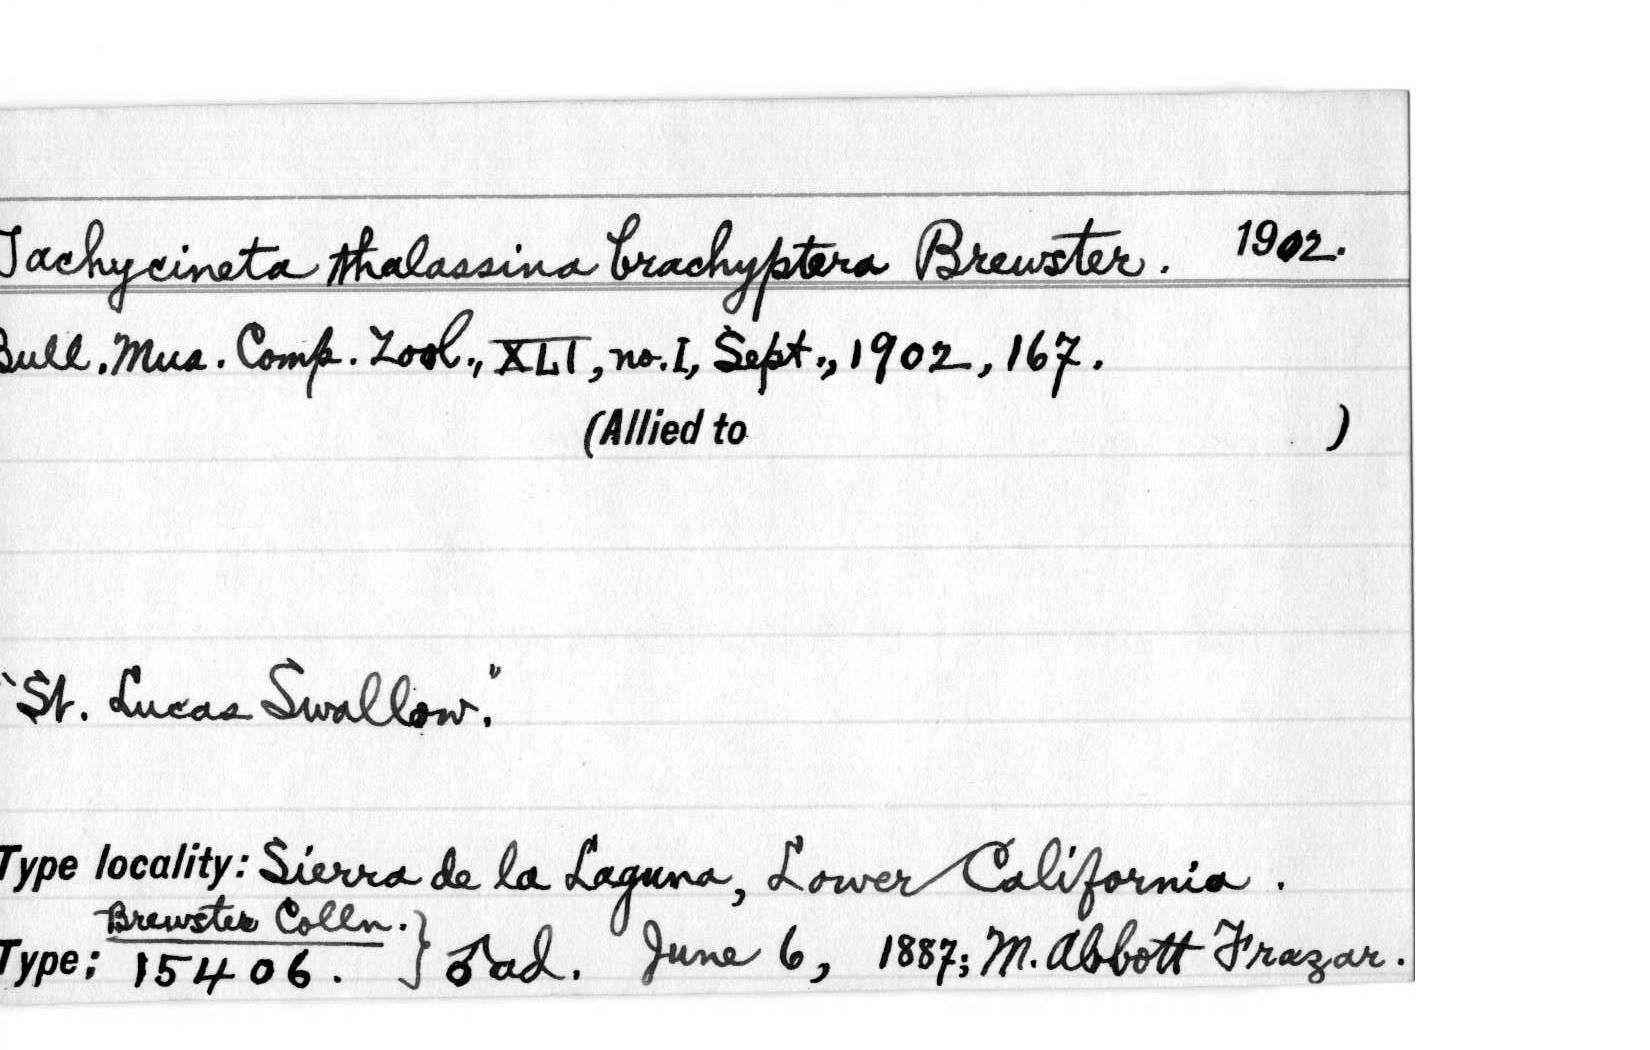 Tachycineta thalassina brachyptera Brewster. 1902.
Bull. Mus. Comp. Zool., XLI, no. I, Sept., 1902, 167.
(Allied to )
"St. Lucas Swallow."
Type locality: Sierra de la Laguna, Lower California.
Brewster Colln.
Type; 15406. } ♂ ad. June 6, 1887; M. Abbott Frazar.